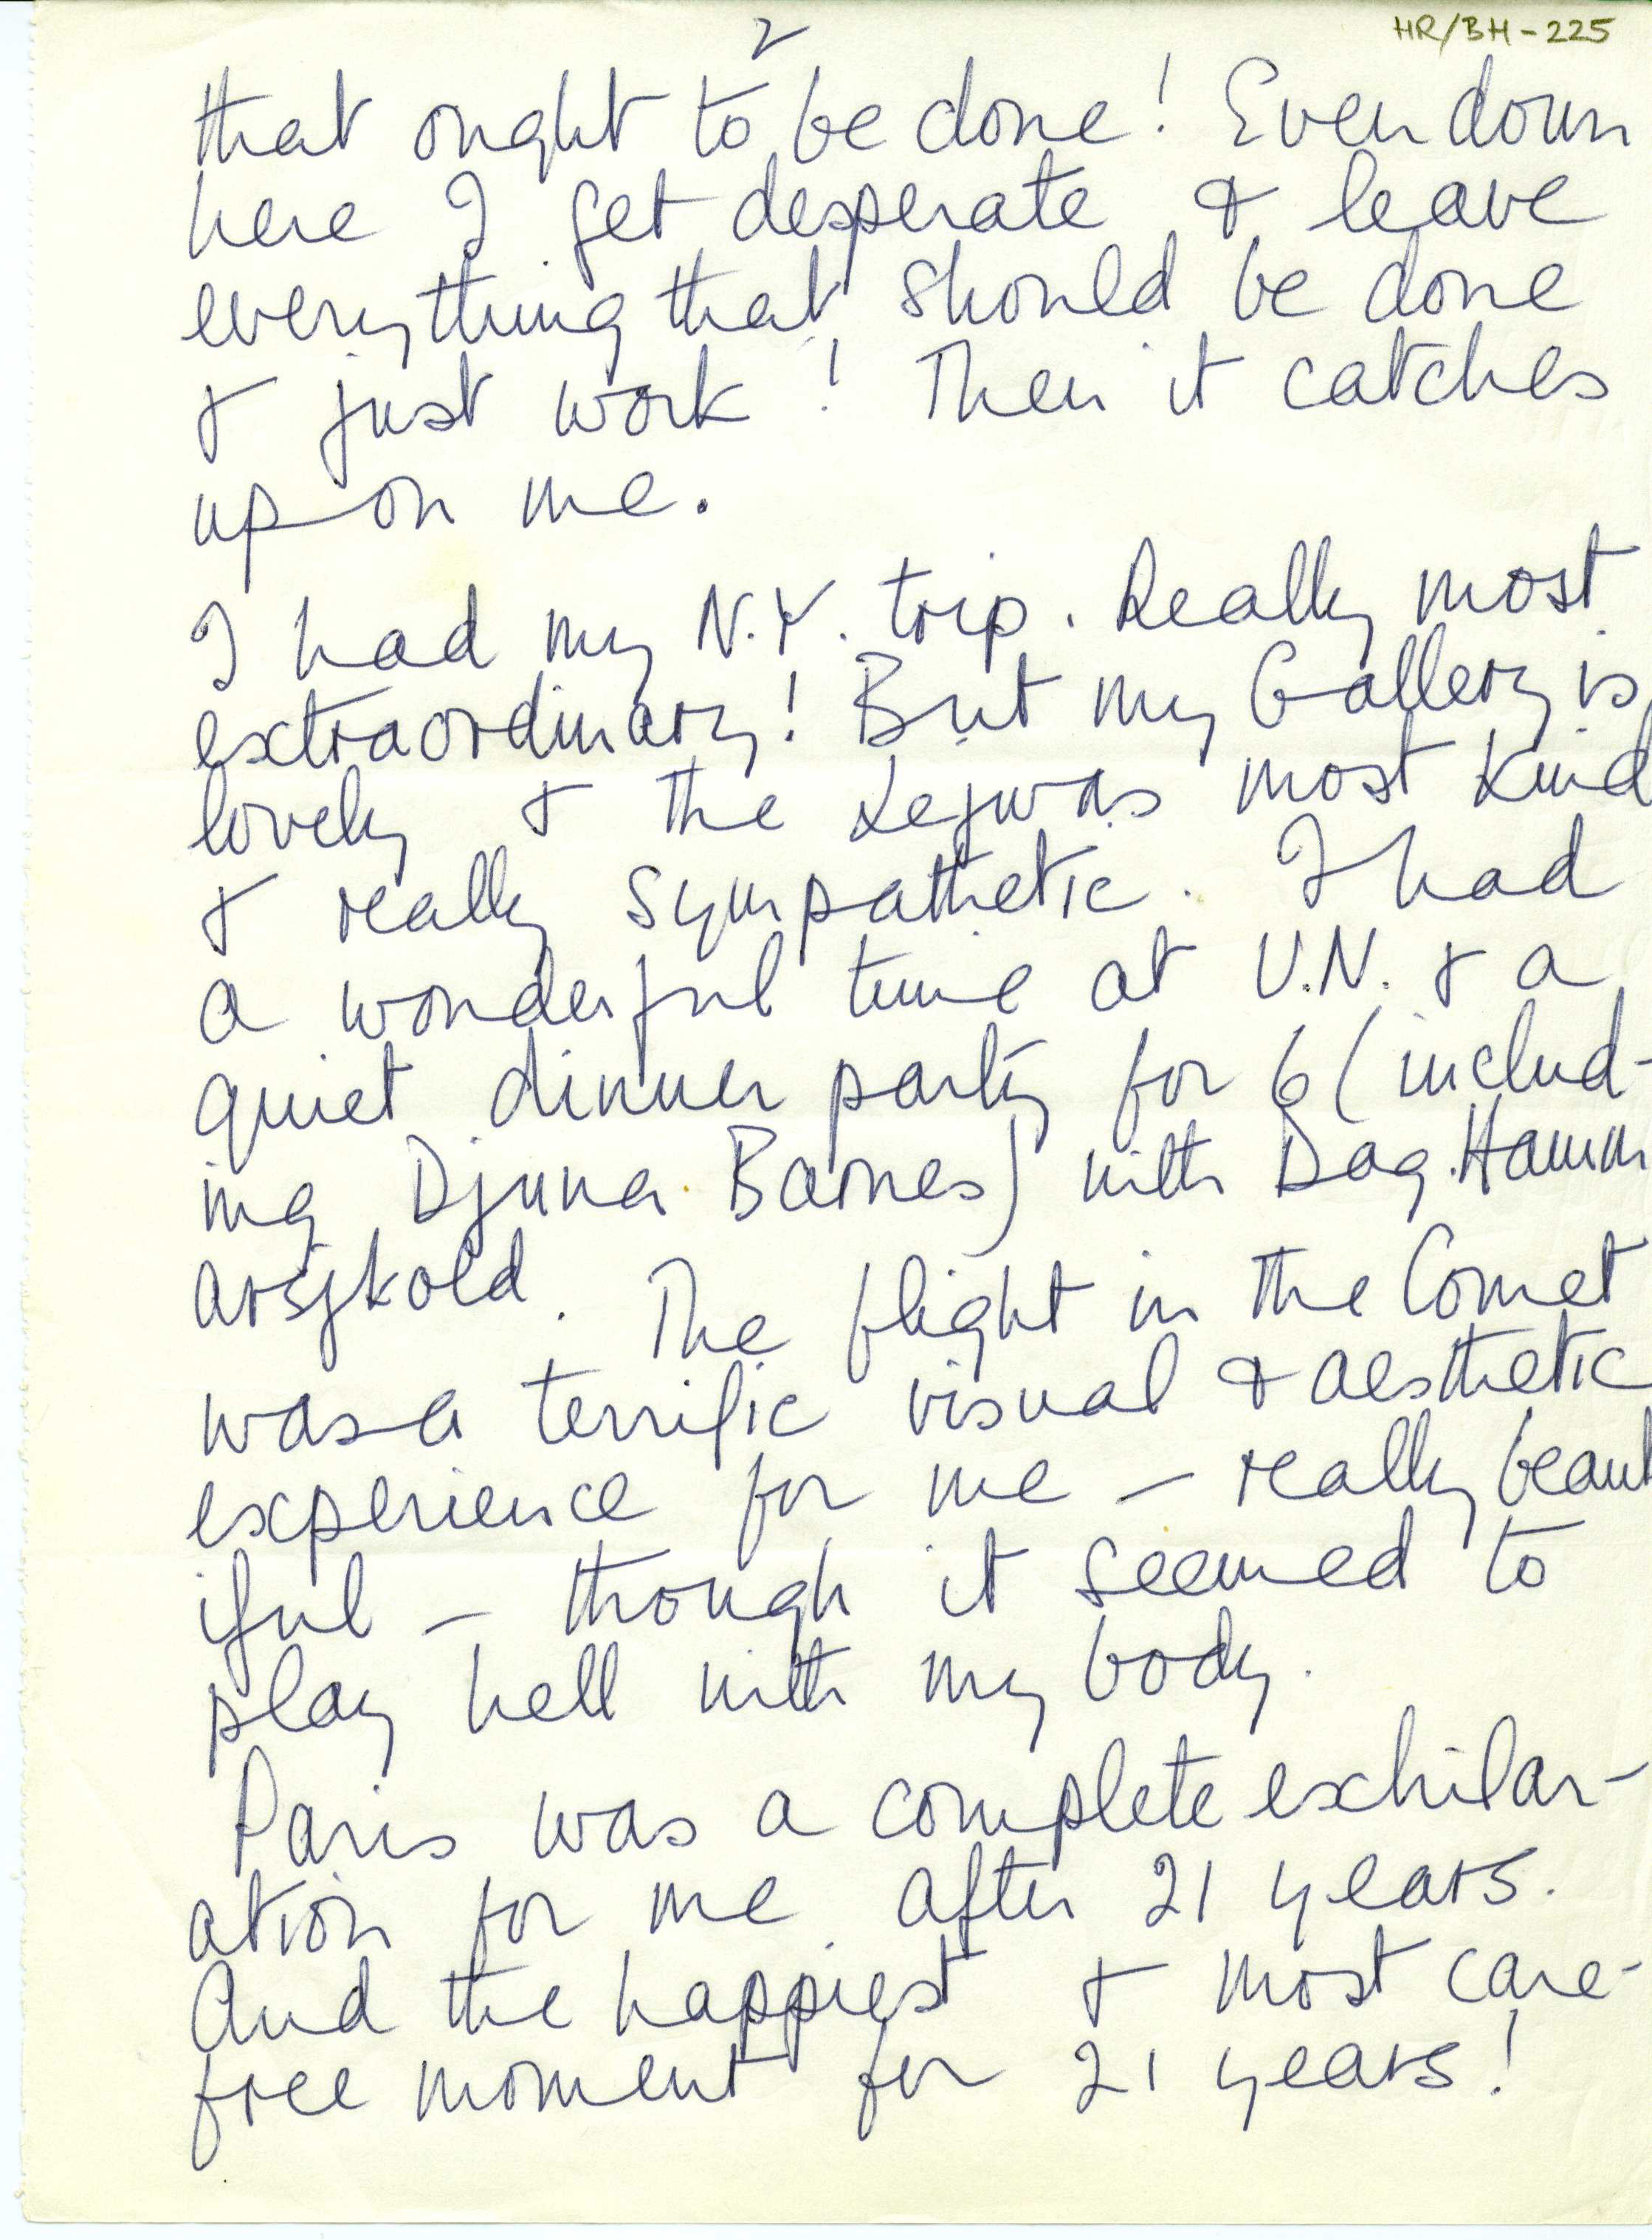 2
HR/BH-225
that ought to be done! Even down
here I get desperate & leave
everything that should be done
& just work! Then it catches
up on me.
I had my N.Y. trip. Really most
extraordinary! But my Gallery is
lovely & the was most kind
& really sympathetic. I had
a wonderful time at U.N. & a
quiet dinner party for 6 (includ-
ing Djuna Barnes) with Dag Hamm
arsjkold. The flight in the Comet
was a terrific visual & aesthetic
experience for me – really beaut
iful – though it seemed to
play hell with my body.
Paris was a complete exhilar-
ation for me after 21 years.
And the happiest & most care-
free moment for 21 years!